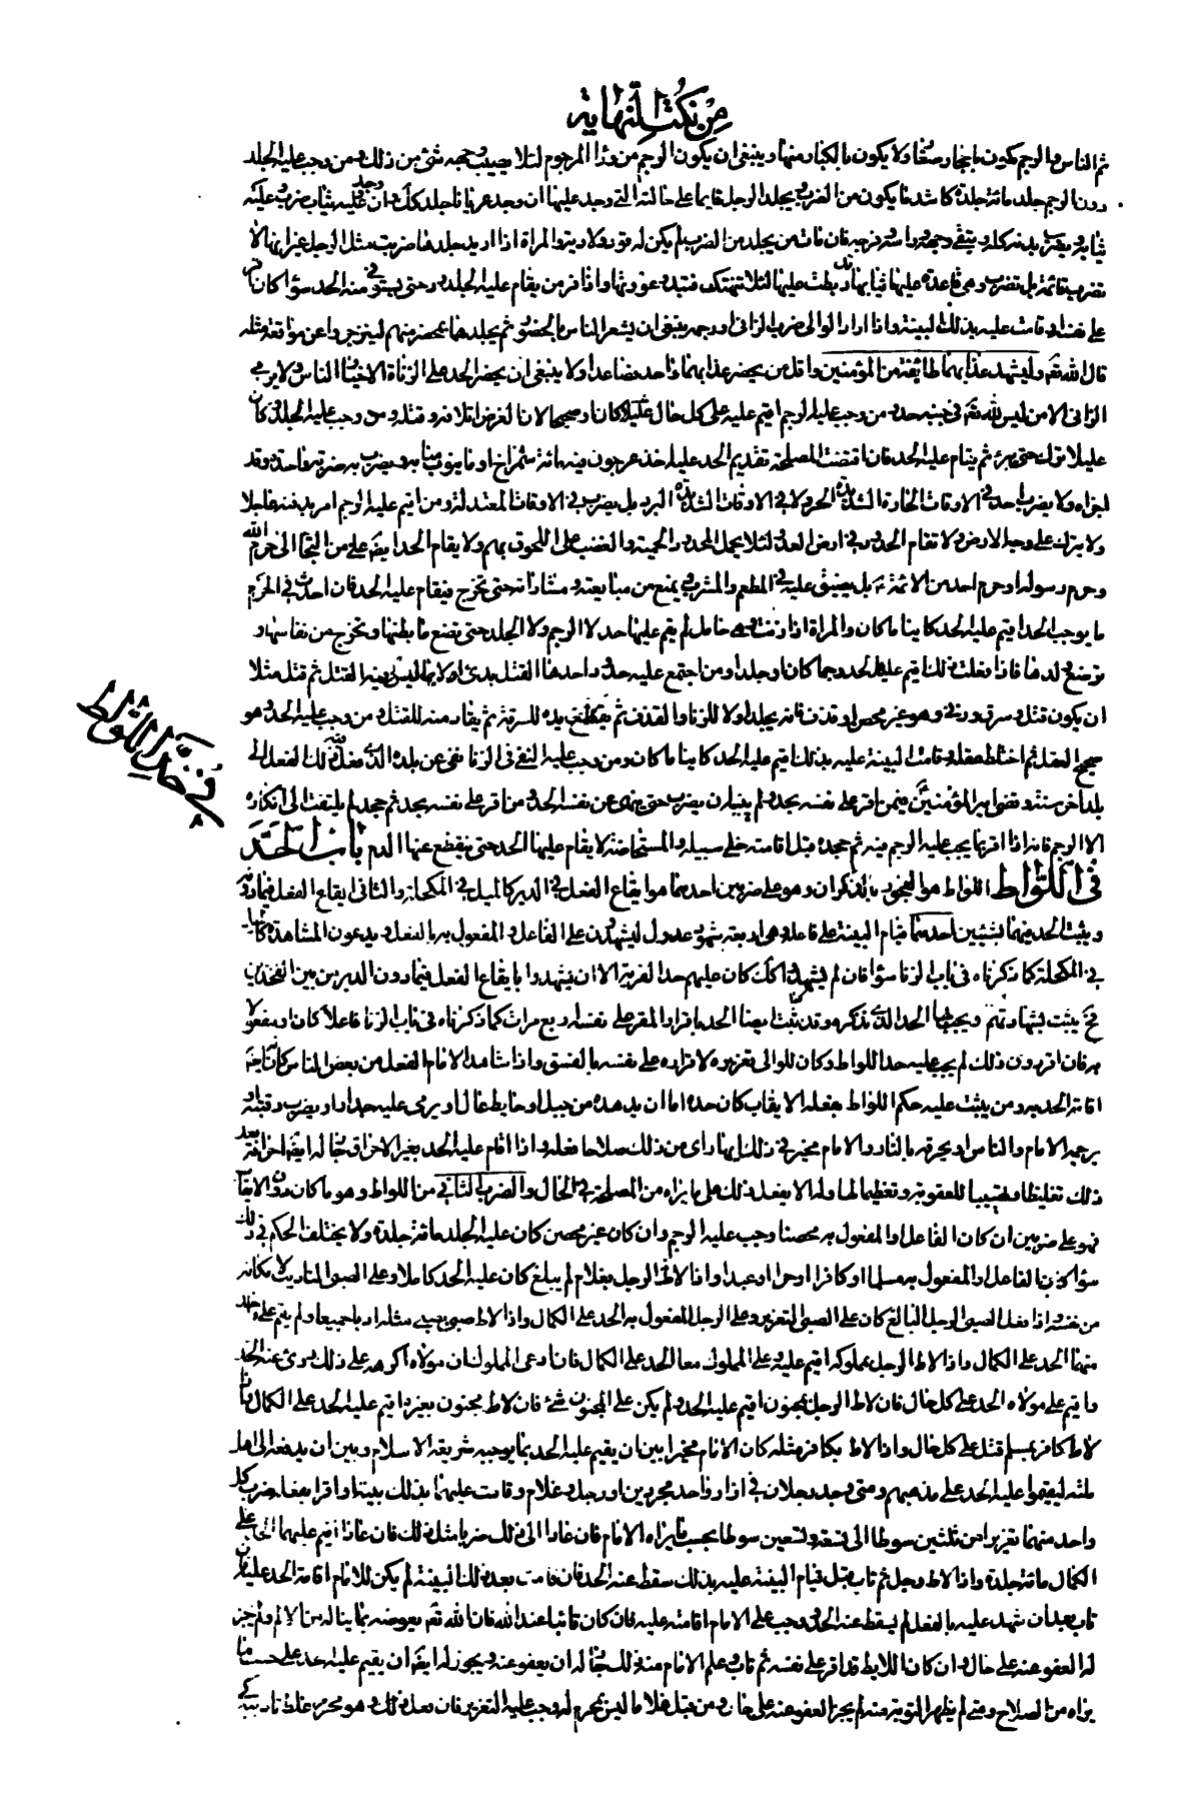 من نكت النهاية
ثم الناس والرجم يكون باحجار صغار ولا يكون بالكبار منها وينبغي ان يكون الرجم من وراء المرجوم لئلا يصيب وجهه شيء من ذلك ومن وجب عليه الجلد
دون الرجم جلد مائة جلدة كاشد ما يكون من الضرب ويجلد الرجل قايما على حالته التي وجد عليها ان وجد عريانا جلد كذلك وان وجد عليه ثياب ضرب وعليه
ثيابه ويضرب بدنه كله ويتقى وجهه وراسه وفرجه فان مات من يجلد من الضرب لم يكن له قود ولا دية والمراة اذا اريد جلدها ضربت مثل الرجل غير انها لا
تضرب قائمة بل تضرب وهي قاعدة عليها ثيابها قد ربطت عليها لئلا تنهتك فتبدو عورتها واذا فر من يقام عليه الجلد رد حتى يستوفى منه الحد سواء كان اقر
على نفسه او قامت عليه بذلك البينة واذا اراد الوالي ضرب الزاني او رجمه ينبغي ان يشعر الناس بالحضور ثم يجلدهما بمحضر منهم لينزجروا عن مواقعة مثله
قال الله تعالى وليشهد عذابهما طائفة من المؤمنين واقل من يحضر عذابهما واحد فصاعدا ولا ينبغي ان يحضر الحد على الزناة الا خيار الناس ولا يرمي
الزاني الا من ليس لله تعالى في جنبه حد ومن وجب عليه الرجم اقيم عليه على كل حال عليلا كان او صحيحا لان الغرض اتلافه وقتله ومن وجب عليه الجلد وكان
عليلا ترك حتى يبرئ ثم يقام عليه الحد فان اقتضت المصلحة تقديم الحد عليه اخذ عرجون فيه مائة شمراخ او ما ينوب منابه ويضرب به ضربة واحدة وقد
اجزاه ولا يضرب احد في الاوقات الحارة الشديدة الحر ولا في الاوقات الشديدة البرد بل يضرب في الاوقات المعتدلة ومن اقيم عليه الرجم امر بدفنه عاجلا
ولا يترك على وجه الارض ولا تقام الحدود في ارض العدو لئلا يحمل المحدود الحمية والغضب على اللحوق بهم ولا يقام الحد ايضا على من التجأ الى حرم الله
وحرم رسوله او حرم احد من الائمة بل يضيق عليه في المطعم والمشرب ويمنع من مبايعته ومشاراته حتى يخرج فيقام عليه الحد فان احدث في الحرم
ما يوجب الحد اقيم عليه الحد كاينا ما كان والمراة اذا زنت وهي حامل لم يقم عليها حد لا الرجم ولا الجلد حتى تضع ما في بطنها وتخرج من نفاسها و
ترضع ولدها فاذا فعلت ذلك اقيم عليها الحد رجما كان او جلدا ومن اجتمع عليه حدود احدها القتل بدئ اولا بما ليس فيه القتل ثم قتل مثلا
ان يكون قتل وسرق وزنى وهو غير محصن او قذف فانه يجلد اولا للزنا والقذف ثم يقطع يده للسرقة ثم يقاد منه للقتل ومن وجب عليه الحد وهو
صحيح العقل ثم اختلط عقله وقامت البينة عليه بذلك اقيم عليه الحد كاينا ما كان ومن وجب عليه النفي في الزنا نفي عن بلده الذي فعل فيه ذلك الفعل الى
بلد اخر سنة وقضى امير المؤمنين فيمن اقر على نفسه بحد ولم يبينه ان يضرب حتى ينهى عن نفسه الحد ومن اقر على نفسه بحد ثم جحد لم يلتفت الى انكاره
الا الرجم فانه اذا اقر بما يجب عليه الرجم فيه ثم جحده قبل اقامته خلى سبيله والمستحاضة لا يقام عليها الحد حتى ينقطع عنها الدم باب الحد
في اللواط اللواط هو الفجور بالذكران وهو على ضربين احدهما هو ايقاع الفعل في الدبر كالميل في المكحلة والثاني ايقاع الفعل فيما دونه
ويثبت الحد فيهما بشيئين احدهما قيام البينة على فاعله وهي اربعة شهود عدول يشهدون على الفاعل والمفعول به بالفعل ويدعون المشاهدة كالميل
في المكحلة كما ذكرناه في باب الزنا سواء فان لم يشهدوا كذلك كان عليهم حد الفرية الا ان يشهدوا بايقاع الفعل فيما دون الدبر من بين الفخذين
فح يثبت شهادتهم ويجب بها الحد الذي نذكره وقد يثبت ايضا الحد باقرار المقر على نفسه اربع مرات كما ذكرناه في باب الزنا فاعلا كان او مفعولا
به فان اقر دون ذلك لم يجب عليه حد اللواط وكان للوالي تعزيره لاقراره على نفسه بالفسق واذا شاهد الامام الفعل من بعض الناس كان له
اقامة الحد به ومن يثبت عليه حكم اللواط بفعله الايقاب كان حده اما ان يدهده من جبل او حايط عال او يرمى عليه جدار او يضرب رقبته او
يرجمه الامام والناس او يحرقه بالنار والامام مخير في ذلك ايها راى من ذلك صلاحا فعله واذا اقام عليه الحد بغير الاحراق جاز له ايضا احراقه بعد
ذلك تغليظا وتهييبا للعقوبة وتعظيما لها وله الا يفعل ذلك على ما يراه من المصلحة في الحال والضرب الثاني من اللواط وهو ما كان دون الايقاب
فهو على ضربين ان كان الفاعل او المفعول به محصنا وجب عليه الرجم وان كان غير محصن كان عليه الجلد مائة جلدة ولا يختلف الحكم في ذلك
سواء كان الفاعل او المفعول به مسلما او كافرا او حرا او عبدا واذا لاط الرجل بغلام لم يبلغ كان عليه الحد كاملا وعلى الصبي التاديب لامكانه
من نفسه واذا فعل الصبي بالرجل البالغ كان على الصبي التعزير وعلى الرجل المفعول به الحد على الكمال واذا لاط صبي بصبي مثله ادبا جميعا ولم يقم على واحد
منهما الحد على الكمال واذا لاط الرجل بمملوكه اقيم عليه وعلى المملوك معا الحد على الكمال فان ادعى المملوك ان مولاه اكرهه على ذلك درئ عنه الحد
واقيم على مولاه الحد على كل حال فان لاط الرجل بمجنون اقيم عليه الحد ولم يكن على المجنون شيء فان لاط مجنون بغيره اقيم عليه الحد على الكمال وان
لاط كافر بمسلم قتل على كل حال واذا لاط بكافر مثله كان الامام مخيرا بين ان يقيم عليه الحد بما يوجبه شريعة الاسلام وبين ان يدفعه الى اهل
ملته ليقيموا عليه الحد على مذهبهم ومتى وجد رجلان في ازار واحد مجردين او رجل وغلام وقامت عليهما بذلك بينة او اقرا بفعله ضرب كل
واحد منهما تعزيرا من ثلثين سوطا الى تسعة وتسعين سوطا بحسب ما يراه الامام فان عادا الى ذلك ضربا مثل ذلك فان عادا اقيم عليهما الحد على
الكمال مائة جلدة واذا لاط رجل ثم تاب قبل قيام البينة عليه بذلك سقط عنه الحد فان قامت بعد ذلك البينة لم يكن للامام اقامة الحد عليه فان
تاب بعد ان شهد عليه بالفعل لم يسقط عنه الحد ووجب على الامام اقامته عليه فان كان تائبا عند الله فان الله تعالى يعوضه بما يناله من الالم ولم يجز
له العفو عنه على حال وان كان اللايط قد اقر على نفسه ثم تاب وعلم الامام منه ذلك جاز له ان يعفو عنه ويجوز له ايضا ان يقيم عليه الحد على حسب ما
يراه من الصلاح ومتى لم يظهر التوبة منه لم يجز العفو عنه على حال ومن قبل غلاما ليس بمحرم له وجب عليه التعزير فان فعل ذلك وهو محرم غلظ تاديبه كي
في حد اللواط